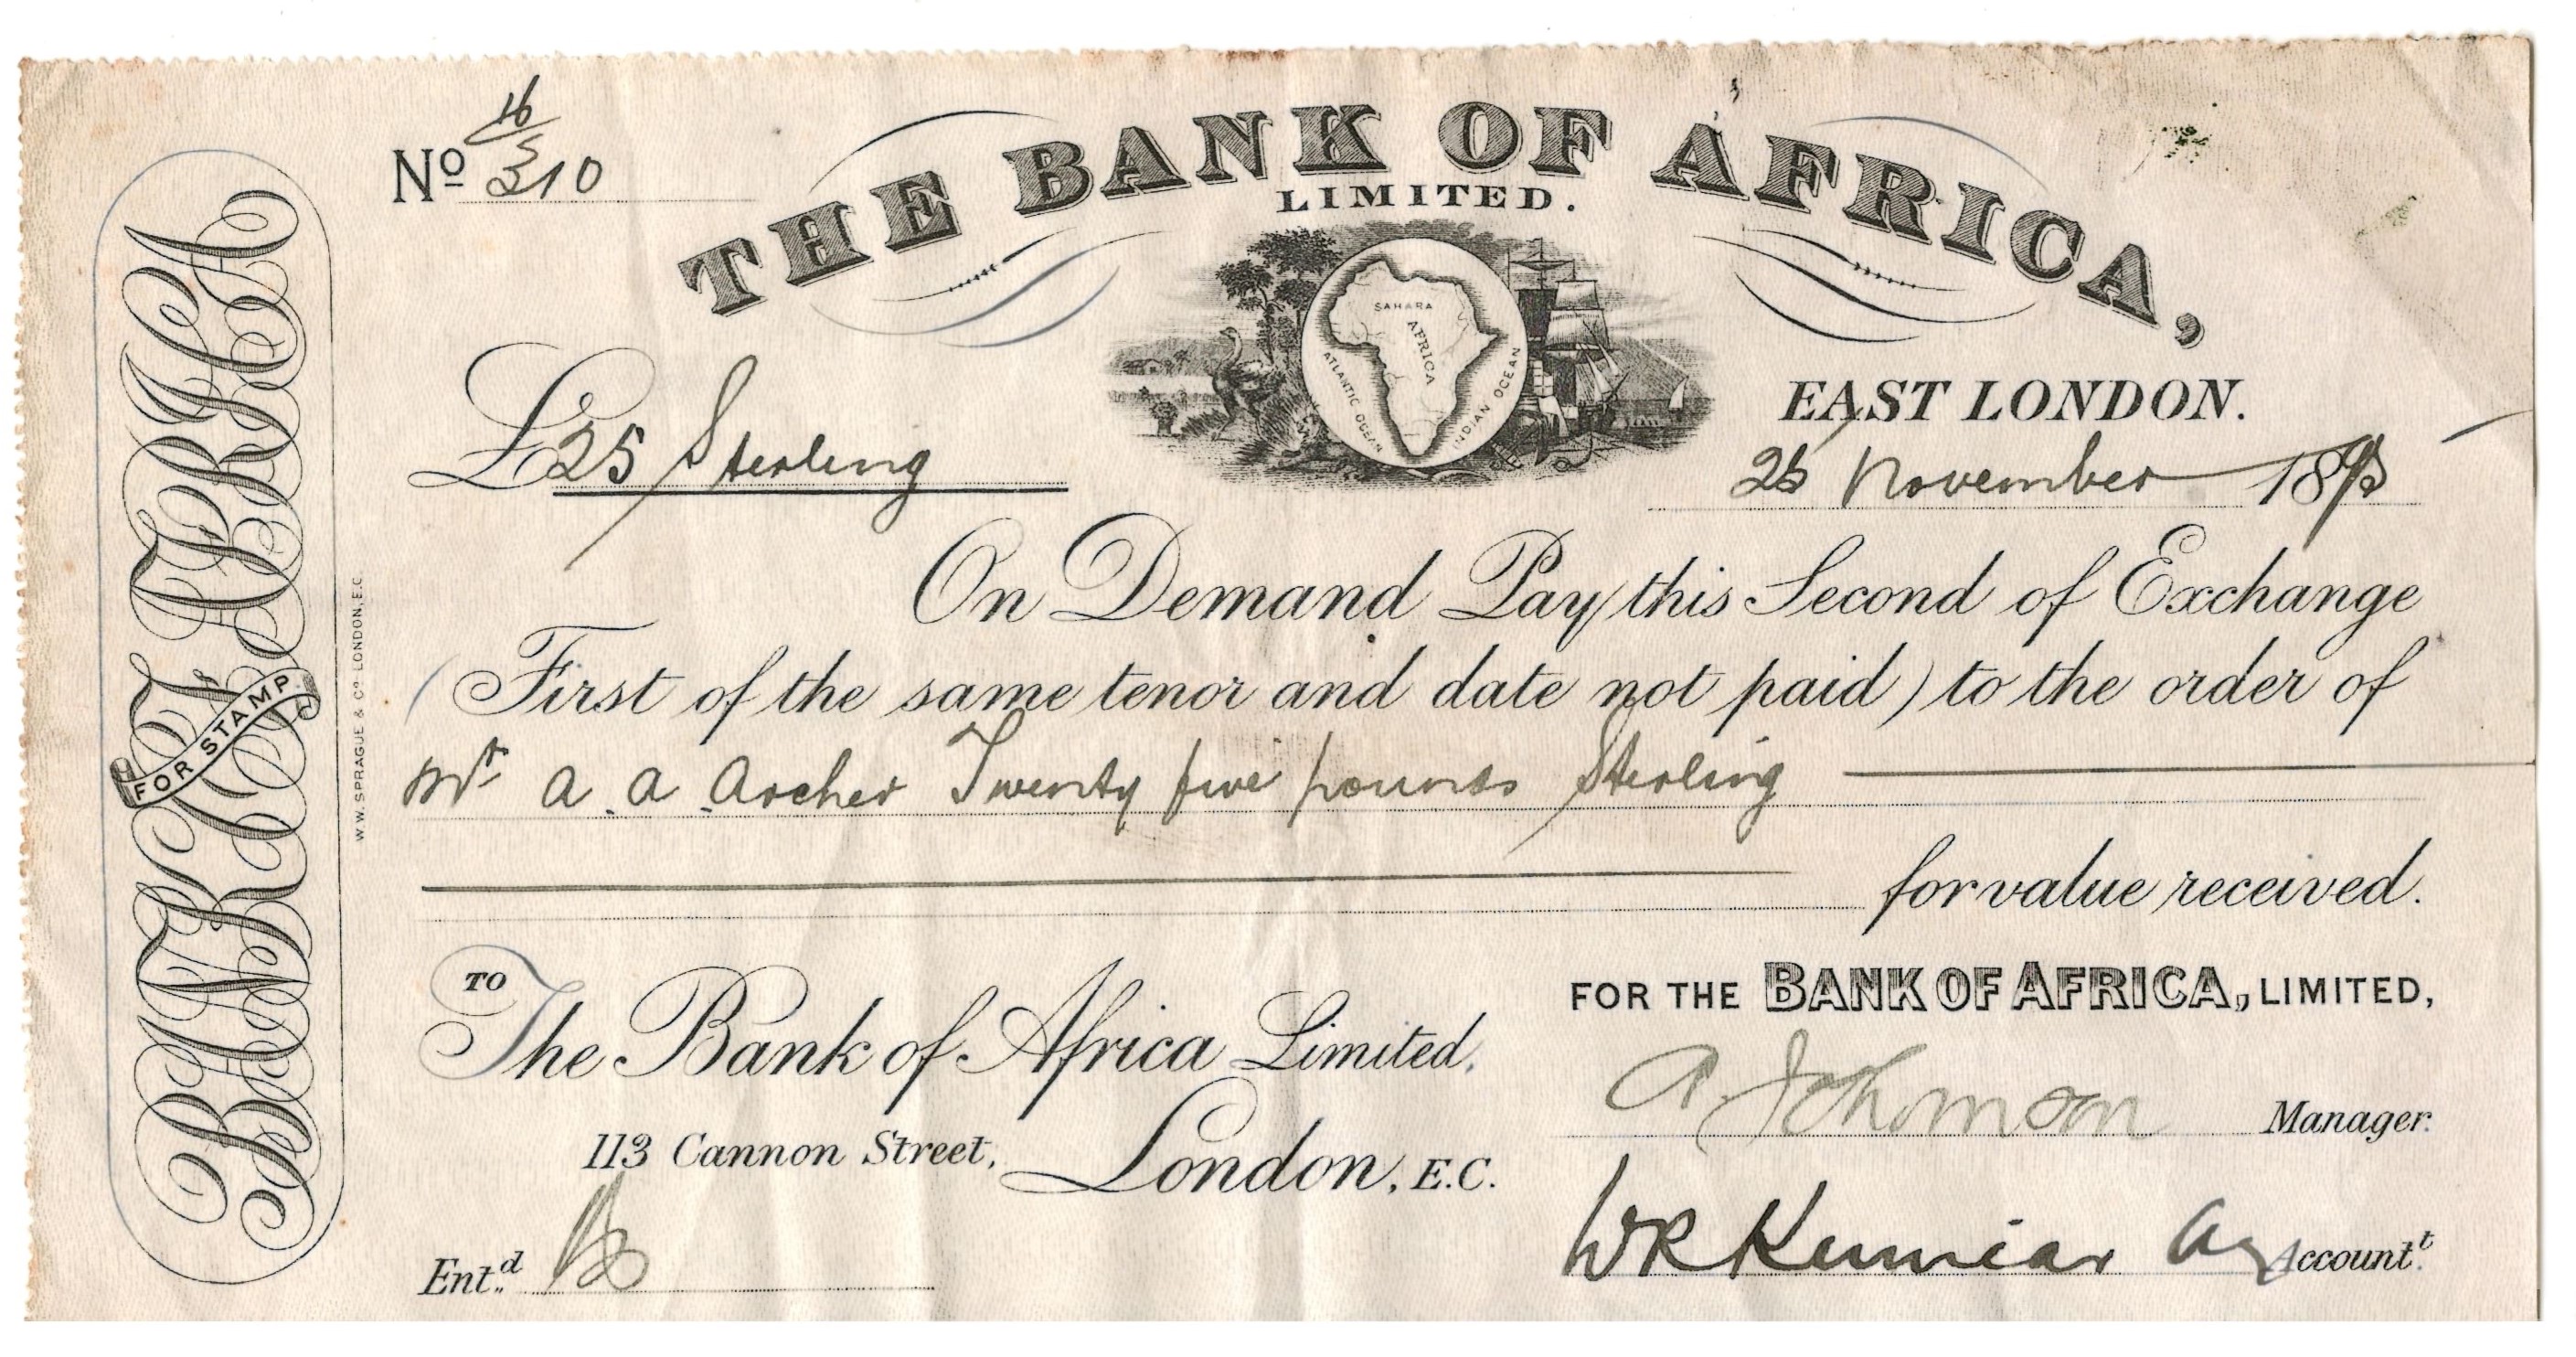 BANK OF AFRICA
FOR STAMP.
W.W. SPRAGUE & Co LONDON, E.C.
No 16/310
THE BANK OF AFRICA,
LIMITED.
SAHARA
AFRICA
ATLANTIC OCEAN
INDIAN OCEAN
EAST LONDON.
£25 Sterling
November 189
On Demand Pay this Second of Exchange
(First of the same tenor and date not paid) to the order of
Mr A. A. Archer Twenty five pounds Sterling
for value received.
TO
The Bank of Africa Limited,
113 Cannon Street, London, E.C.
FOR THE BANK OF AFRICA, LIMITED,
Manager.
Ent.d
W R Ag Account.t